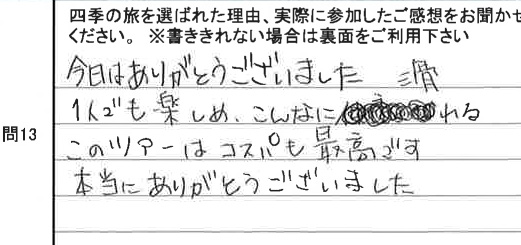 四季の旅を選ばれた理由、実際に参加したご感想をお聞かせ
ください。 ※書ききれない場合は裏面をご利用下さい
問13
今日はありがとうございました
1人でも楽しめ、こんなに れる
このツアーはコスパも最高です
本当にありがとうございました